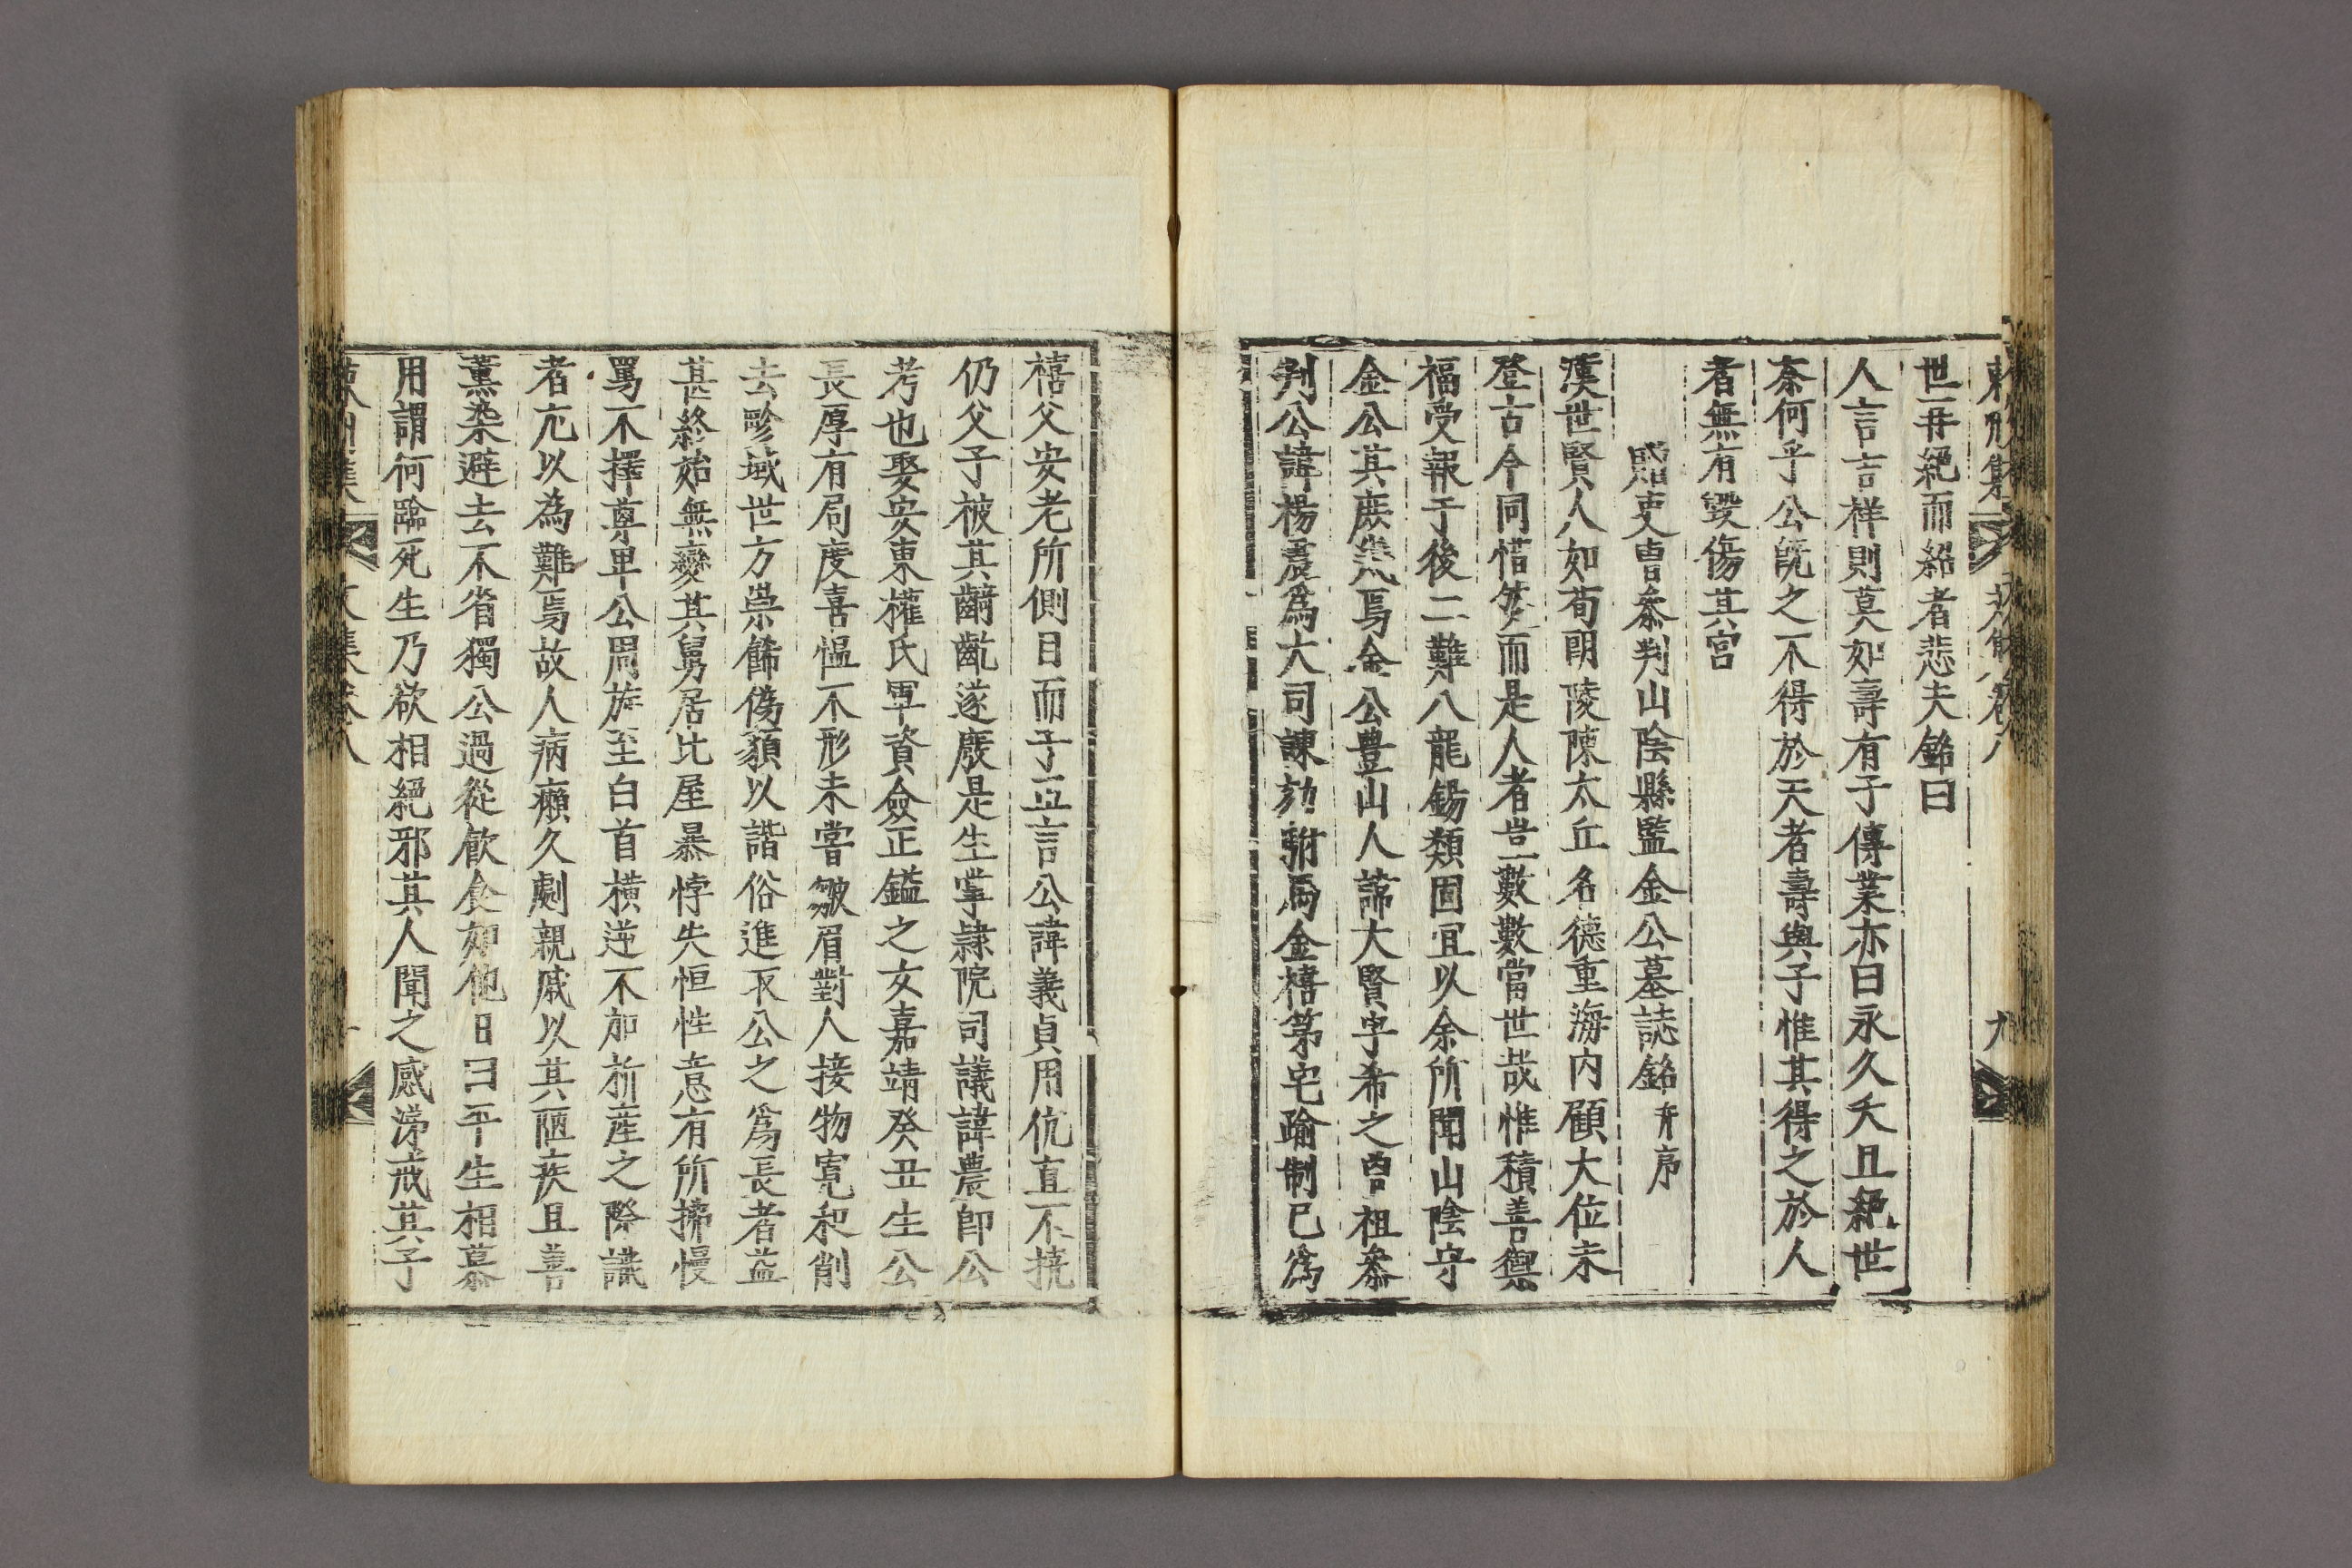 東州集 文集卷八 九
世再絕而紹者悲夫銘曰
人言言样則莫如壽有子傳業亦曰永久夭且絕世
柰何乎公旣之不得於天者壽與子惟其得之於人
者無有毀傷其宮
贈吏曹叅判山陰縣監金公墓誌銘 幷序
漢世賢人如荀朗陵陳太丘名德重海内顧大位未
登古今同惜然而是人者豈數數當世哉惟積善禦
福受報于後二難八龍錫類固宜以余所聞山陰守
金公其庶幾焉金公豊山人諱大賢字希之曾祖叅
判公諱楊震爲大司諫劾駙馬金禧第宅踰制已爲
禧父安老所側目而子正言公諱義貞用伉直不撓
仍父子被其齮齕遂廢是生掌隷院司議諱農卽公
考也娶安東權氏軍資僉正鎰之女嘉靖癸丑生公
長厚有局度喜慍不形未嘗皺眉對人接物寬和削
去畛域世方崇餙僞貌以諧俗進取公之爲長者益
甚終始無變其舅居比屋暴悖失恒性意有所拂慢
罵不擇尊卑公周旋至白首橫逆不加析産之際識
者尤以為難焉故人病癩久劇親戚以其陋疾且善
薰染避去不省獨公過從飮食如他日曰平生相慕
用謂何臨死生乃欲相絕邪其人聞之感涕戒其子
東州集 文集卷八